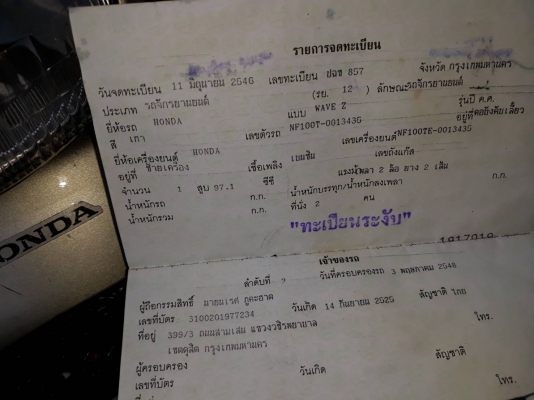 รายการจดทะเบียน
วันจดทะเบียน 11 มิถุนายน 2546 เลขทะเบียน ปฉข 857 จังหวัด กรุงเทพมหานคร
ประเภท รถจักรยานยนต์ (รย. 12 ) ลักษณะรถจักรยานยนต์
ยี่ห้อรถ HONDA แบบ WAVE Z รุ่นปี ค.ศ.
สี เทา เลขตัวรถ NF100T-0013435 อยู่ที่
ยี่ห้อเครื่องยนต์ HONDA เลขเครื่องยนต์ NF100TE-0013435
อยู่ที่ เชื้อเพลิง เบนซิน เลขถังแก๊ส
จำนวน 1 สูบ 97.1 ซีซี แรงม้า เพลา 2 ล้อ ยาง 2 เส้น
น้ำหนักรถ ก.ก. น้ำหนักบรรทุก/น้ำหนักลงเพลา ก.ก.
น้ำหนักรวม ก.ก. ที่นั่ง 2 คน
"ทะเบียนระงับ"
HONDA
เจ้าของรถ
ลำดับที่ วันที่ครอบครองรถ 3 พฤษภาคม 2548
ผู้ถือกรรมสิทธิ์
เลขที่บัตร 3100201977234 วันเกิด 14 กันยายน 2525 สัญชาติ ไทย
ที่อยู่ 399/3 ถนนสามเสน แขวงวชิรพยาบาล โทร.
เขตดุสิต กรุงเทพมหานคร
ผู้ครอบครอง
เลขที่บัตร วันเกิด สัญชาติ
โทร.